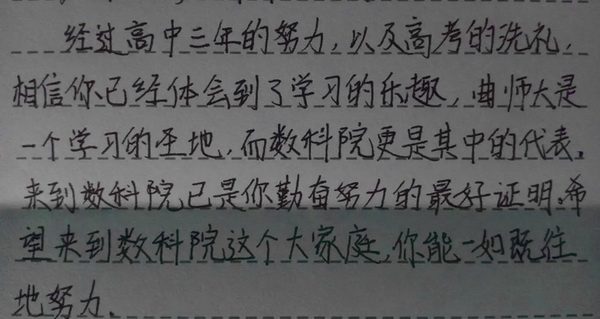 经过高中三年的努力，以及高考的洗礼，
相信你已经体会到了学习的乐趣，曲师大是
一个学习的圣地，而数科院更是其中的代表，
来到数科院已是你勤奋努力的最好证明。希
望来到数科院这个大家庭，你能一如既往
地努力、